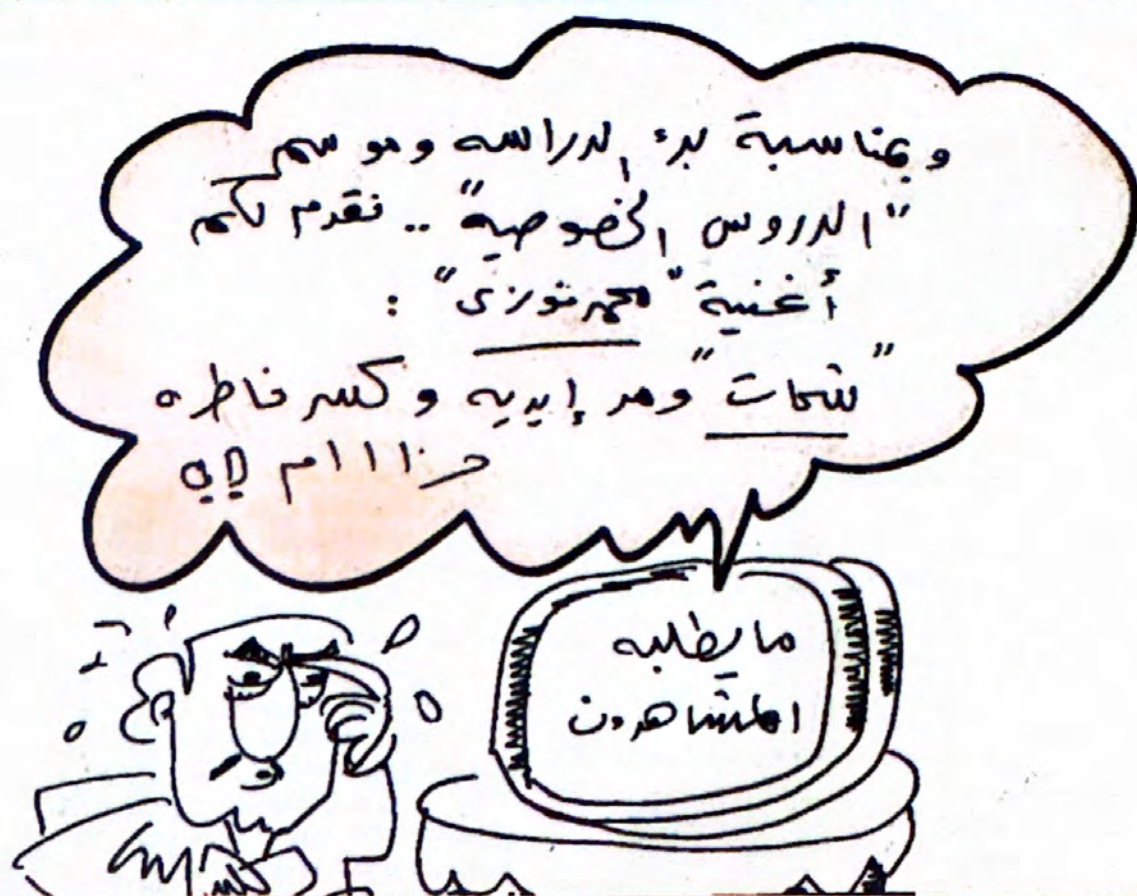 وبمناسبة بدء الدراسه وموسم
"الدروس الخصوصية" .. نقدم لكم
أغنية "محمد فوزى" :
"شحات" ومد إيديه وكسر خاطره
حراااام ليه
ما يطلبه
المشاهدون